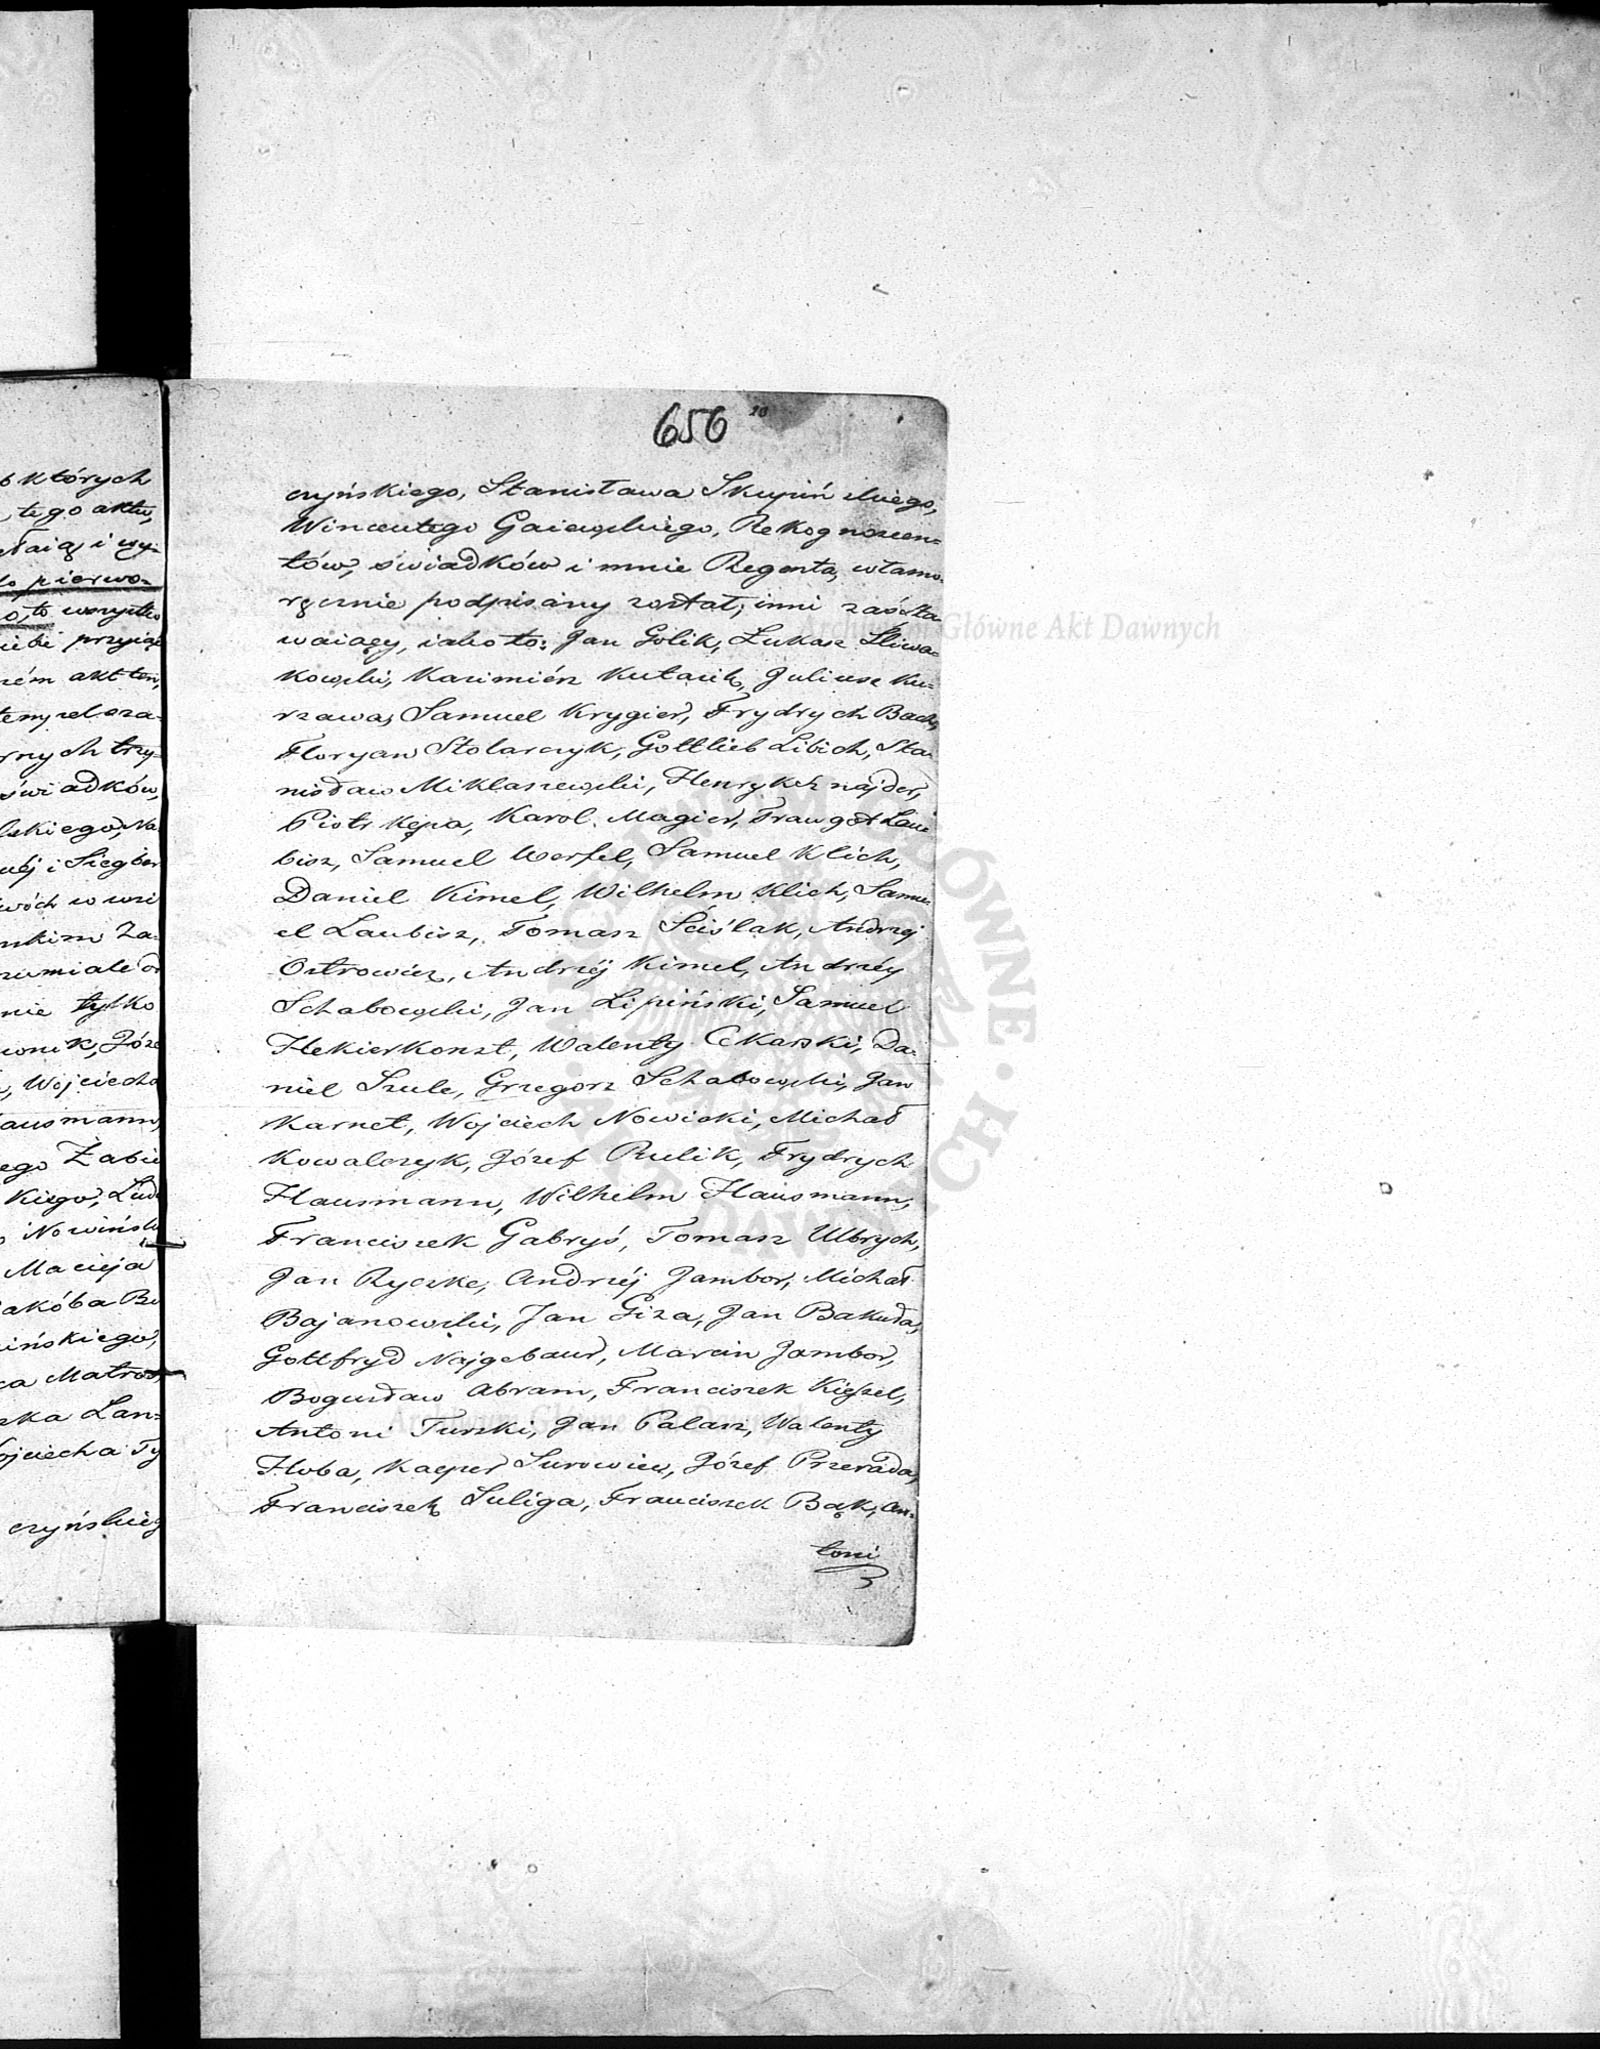 b których
, tego aktu,
łaią i wy-
lo pierwo-
o, to wszystko
iebie przyią
rém akt ten,
rnych trzy-
świadków,
lskiego, Na
uéj i Siegber
wóch w wsi
nskim Za-
zumiałe
nie tylko
ownik, Józe
, Wojciecha
ausmann,
ego Żabic
kiego, Lud
, Nowińsk
Macieja
akóba Bu
ińskiego,
ca Matros
zka Lan-
ojciecha Ty
czyńskieg
656 20
czyńskiego, Stanisława Skupińskiego,
Wincentego Gaiewskiego, Rekognoscen-
tów, świadków i mnie Regenta, własno-
ręcznie podpisany został, inni zaś sta-
waiący, iako to: Jan Golik, Łukasz Śliwa-
kowski, Kazimiérz Kutasik, Juliusz Ku-
rzawa, Samuel Krygier, Frydrych Bach,
Floryan Stolarczyk, Gottlieb Libich, Sta-
nisław Miklaszewski, Henryk Sznajder,
Piotr Kępa, Karol Magier, Traugot Lau-
bisz, Samuel Werfel, Samuel Klich,
Daniel Kimel, Wilhelm Klich, Samu-
el Laubisz, Tomasz Sciślak, Andrzej
Ostrowicz, Andrzéj Kimel, Andrzéy
Schabowski, Jan Lipiński, Samuel
Hekierkonszt, Walenty Cekarski, Da-
niel Szulc, Grzegorz Schabowski, Jan
Karnet, Wojciech Nowicki, Michał
Kowalczyk, Józef Rulik, Frydrych
Hausmann, Wilhelm Hausmann,
Franciszek Gabryś, Tomasz Ulbrych,
Jan Ryczke, Andrzéj Jambor, Michał
Bojanowski, Jan Giza, Jan Bakuła,
Gottfryd Najgebaur, Marcin Jambor,
Bogusław Abram, Franciszek Kieszel,
Antoni Turski, Jan Palasz, Walenty
Hoba, Kacper Surowiec, Józef Przerada,
Franciszek Suliga, Franciszek Bąk, An-
toni
Archiwum Główne Akt Dawnych